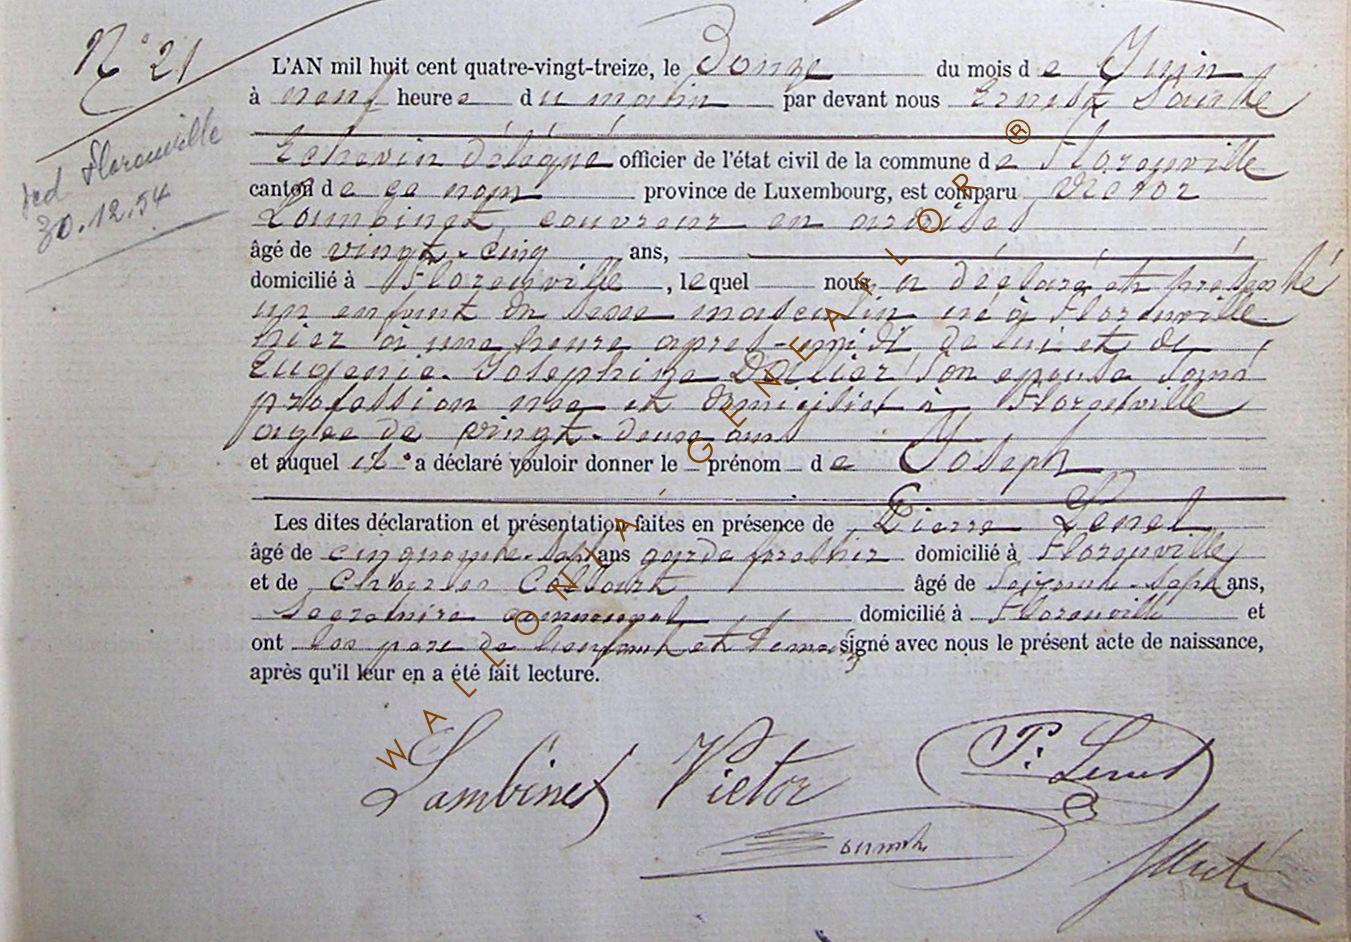 N° 21
L'AN mil huit cent quatre-vingt-treize, le Douze du mois de Juin
à neuf heures du matin par devant nous Ernest
Echevin délégué officier de l'état civil de la commune de Florenville
canton de ce nom province de Luxembourg, est comparu Victor
Lambinet, couvreur en ardoises
âgé de vingt-cinq ans,
domicilié à Florenville, lequel nous a déclaré et présenté
un enfant du sexe masculin né à Florenville
hier à une heure après-midi de lui et de
Eugénie Joséphine son épouse sans
profession née et domiciliée à Florenville
agée de vingt-deux ans
et auquel il a déclaré vouloir donner le prénom de Joseph
Les dites déclaration et présentation faites en présence de Pierre
âgé de cinquante-sept ans garde forestier domicilié à Florenville
et de Charles âgé de soixante-sept ans,
Secrétaire communal domicilié à Florenville et
ont les père de l'enfant et témoins signé avec nous le présent acte de naissance,
après qu'il leur en a été fait lecture.
Lambinet Victor
déd Florenville
30.12.54
WALLONIA-GENEAFLOR®